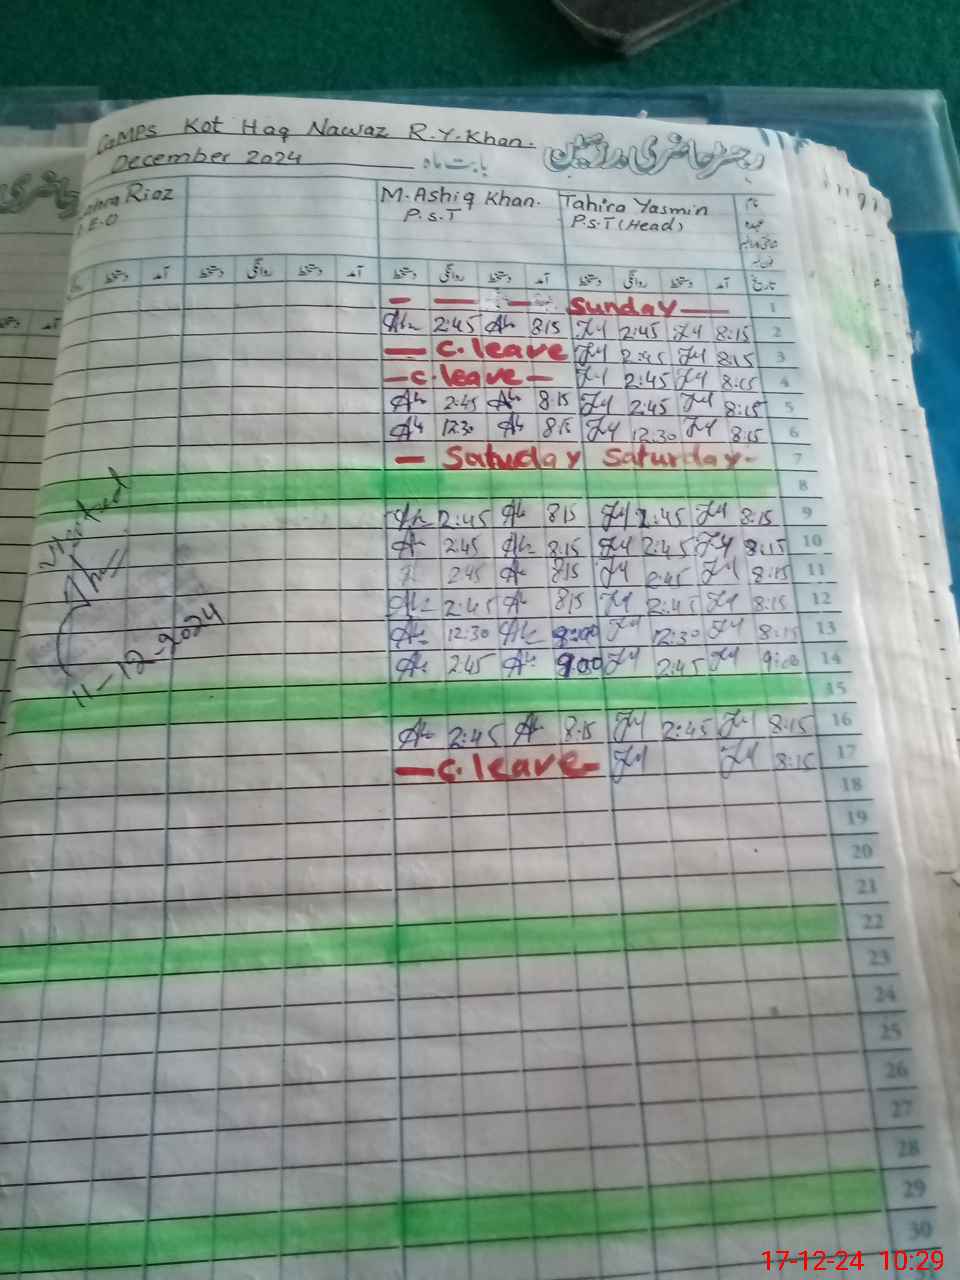 GGMPS Kot Haq Nawaz R.Y.Khan.
December 2024 بابت ماہ رجسٹر حاضری مدرسین
Riaz M.Ashiq Khan. Tahira Yasmin نام
E.O P.s.T P.s.T (Head) عہدہ
دستخط آمد دستخط روانگی دستخط آمد دستخط روانگی دستخط آمد دستخط روانگی دستخط آمد تاریخ
Sunday 1
2:45 8:15 2:45 8:15 2
C.leave 2:45 8:15 3
C.leave 2:45 8:15 4
2:45 8:15 2:45 8:15 5
12:30 8:15 12:30 8:15 6
Satuday Saturday 7
8
2:45 8:15 2:45 8:15 9
2:45 8:15 2:45 8:15 10
2:45 8:15 2:45 8:15 11
2:45 8:15 2:45 8:15 12
12:30 9:00 12:30 8:15 13
2:45 9:00 2:45 9:00 14
15
2:45 8:15 2:45 8:15 16
C.leave 8:15 17
18
19
20
21
22
23
24
25
26
27
28
29
30
Visited
11-12-2024
17-12-24 10:29